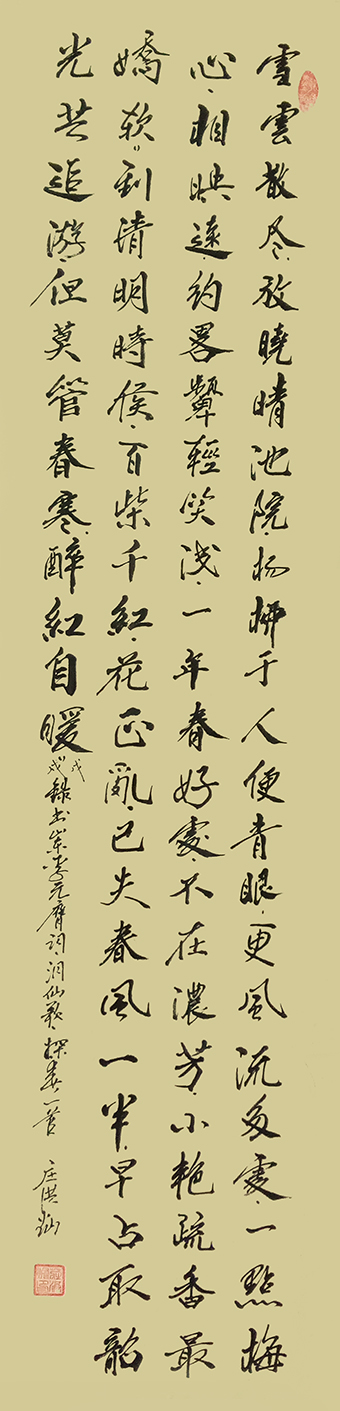 雪雲散尽放曉晴池院杨柳于人便青眼更風流多處一點梅
心相映遠約畧顰輕笑浅一年春好處不在濃芳小艳疏香最
嬌软到清明時候百紫千紅花正亂已失春風一半早占取韶
光共追游但莫管春寒醉紅自暖
戊戌錄书宋李元膺词洞仙歌探春一首 庄洪